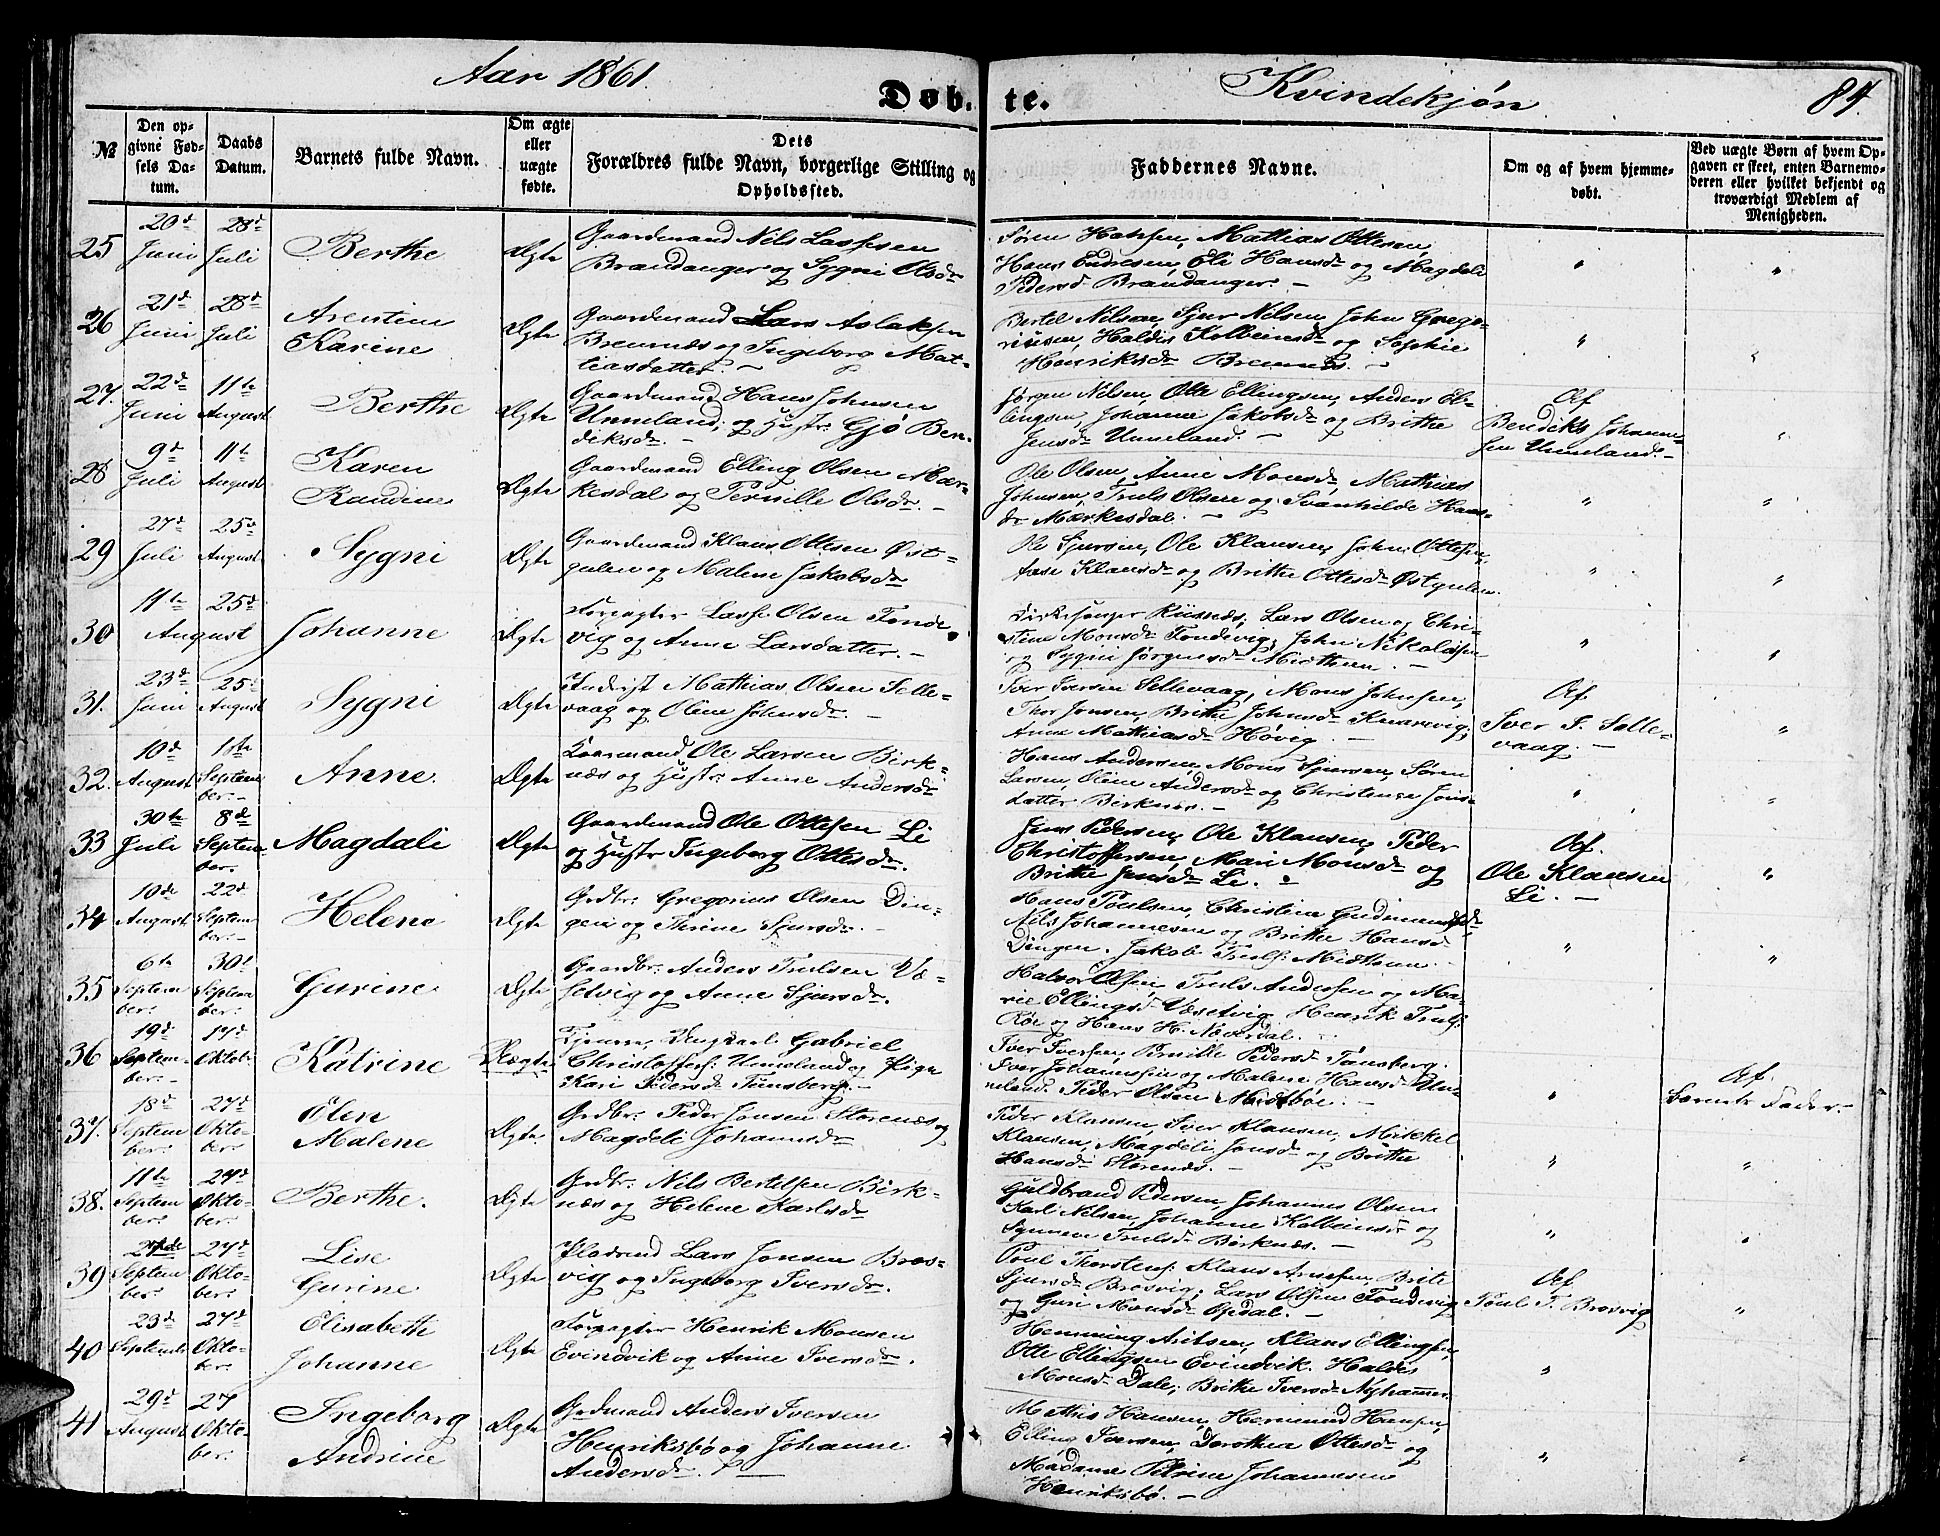 Aar 1861.
Döb. te.
Kvindekjøn
84.
№
Den op-
givne Fød-
sels Da-
tum.
Daabs
Datum.
Barnets fulde Navn.
Om ægte
eller
uægte
fødte.
Dets
Forældres fulde Navn, borgerlige Stilling og
Opholdssted.
Faddernes Navne.
Om og af hvem hjemme-
døbt.
Ved uægte Børn af hvem Op-
gaven er skeet, enten Barnemo-
deren eller hvilket bekjendt og
troværdigt Medlem af
Menigheden.
25
20de Juni
28de Juli
Berthe
Ægte
Gaardmand Nils Lassesen
Brandanger og Sygni Olsdr
Søren Hansen, Mathias Ottesen,
Hans Endresen, Eli Hansdr og Magdeli
Pedersdr Brandanger. -
26
21de Juni
28de Juli
Arentine
Karine
Ægte
Gaardmand Lars Aslaksen
Bremnæs og Ingeborg Mat-
tiasdatter. -
Bertel Nilsen, Sjur Nilsen, John Grego-
riusen, Haldis Kolbeinsdr og Sophie
Henriksdr Bremnes. -
27.
22de Juni
11te August
Berthe
Ægte
Gaardmand Hans Johnsen
Unneland, og Hustr: Gjø Ben-
diksdr. -
Jørgen Nilsen, Ole Ellingsen, Anders El-
lingsen, Johanne Jakobsdr og Brithe
Jensdr Unneland. -
Af
Bendiks Johann-
sen Unneland. -
28
9de Juli
11te August
Karen
Raudine
Ægte
Gaardmand Elling Olsen Mær-
kesdal og Pernille Olsdr. -
Ole Olsen, Anne Monsdr, Mathias
Johnsen, Truls Olsen og Svanhilde Hans-
dr Mærkesdal. -
29
27de Juli
25de August
Sygni
Ægte
Gaardmand Klaus Ottesen Øst-
gulen og Malene Jakobsdr
Ole Sjursen, Ole Klausen, John Ottesen,
Klausdr og Brithe Ottesdr Østgulen.
30
11te August
25de
Johanne
Ægte
Forpagter Lasse Olsen Fonde-
vig og Anne Larsdatter. -
Kirkesanger Lars Olsen og Chri-
stine Monsdr Fondevig, John Nikolaisen
og Sygni Jørgensdr Midthun. -
31.
23de Juni
25de August
Sygni
Ægte
Inderst Mathias Olsen Selle-
vaag og Oline Johnsdr. -
Iver Iversen Sellevaag, Mons Johnsen,
Thor Jonsen, Brithe Johnsdr Kvarevig,
Anne Mathiasdr Høvig. -
Af
Iver I. Selle-
vaag. -
32.
10de August
1ste Septem-
ber. -
Anne
Ægte
Gaarmand Ole Larsen Birk-
næs og Hustr: Anne Andersdr
Hans Andersen, Mons Sjursen, Søren
Larsen, Oline Andersdr og Christense Jons-
datter Birknæs. -
33
30te Juli
8de Septem-
ber.
Magdali
Ægte
Gaardmand Ole Ottesen Li
og Hustr Ingeborg Ottesdr.
Jens Pedersen, Ole Klausen, Peder
Christoffersen, Mari Monsdr og
Brithe Jensdr Li. -
Af.
Ole Klausen
Li. -
34
10de August
22de Septem-
ber. -
Helene
Ægte
Grdbr: Gregorius Olsen Din-
gen og Thrine Sjursdr. -
Hans Truelsen, Christine Gudmundsdr
Nils Johannesen og Brithe Hansdr
Dingen. Jakob Trulss: Midthun.
35
6te Septem-
ber:
30te Septem-
ber:
Gurine
Ægte
Gaardbr: Anders Trulsen Væ-
setvig og Anne Sjursdr.
Halvor Olsen, Truls Andersen og Ma-
rie Ellingsdr Væsetvig, Henrik Truls:
og Hans H. Nøverdal.
36
19de Septem-
ber. -
17de Oktob:
Katrine
Uægte
Ungkarl Gabriel
Christoffers: Unneland og Pige
Kari Pedersdr Tønsberg. -
Iver Iversen, Pernille Pedersdr Tønsberg.
Iver Johannesen og Malene Hansdr Un-
neland. Peder Olsen Midtbøe. -
Af.
Barnets Fader. -
37.
18de Septem
ber:
27de Okto-
ber:
Elen
Malene
Ægte.
Grdbr: Peder Jonsen Storenæs og
Magdeli Johannsdr
Peder Klausen, Iver Klausen, Mikkel
Klausen, Magdeli Jonsdr og Brithe
Hansdr Storenæs. -
38.
11te Septem
ber:
27de Okto-
ber:
Berthe.
Ægte
Grdbr: Nils Bertelsen Birk-
næs og Helene Karlsdr
Guldbrand Pedersen, Johannes Olsen
Karl Nilsen, Johanne Kolbeinsdr og
Synneve Trulsdr Birknæs. -
39
Septem
ber:
27de Okto-
ber:
Lise
Gurine
Ægte
Pladsmd Lars Jonsen Bros-
vig og Ingeborg Iversdr.
Poul Thorstens: Klaus Arnesen, Brite
Sjursdr Brosvig, Lars Olsen Fondevig
og Guri Monsdr Opdal. -
Af
Poul T. Brosvig
40
23de Septembr
27de Okto-
ber:
Elisabeth
Johanne
Ægte
Forpagter Henrik Monsen
Evindvik og Anne Iversdr.
Hemming Antsen, Klaus Ellingsen,
Otte Ellingsen Evindvik. Haldis
Monsdr Dale, Brithe Iversdr Nyhammer
41
29de August
27 Okto-
ber:
Ingeborg
Andrine
Ægte
Grdmand Anders Iversen
Henriksbø og Johanne
Andersdr. -
Mathis Hansen, Hermund Hansen,
Elling Iversen, Dorothea Ottesdr og
Madame Petrine Johannesen
Henriksbø. -